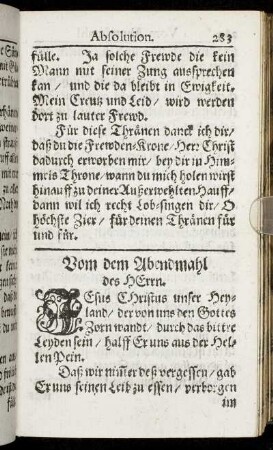 Absolution. 283
fülle. Ja solche Frewde die kein
Mann mit seiner Zung aussprechen
kan / und die da bleibt in Ewigkeit.
Mein Creutz und Leid / wird werden
dort zu lauter Frewd.
Für diese Thränen danck ich dir /
daß du die Frewden-Krone / Herr Christ
dadurch erworben mir / bey dir in Him-
mels Throne / wann du mich holen wirst
hinauff zu deiner Außerwehlten Hauff /
dann wil ich recht Lob-singen dir / O
höchste Zier / für deinen Thränen für
und für.
Vom dem Abendmahl
des HErrn.
JEsus CHristus unser Hey-
land / der von uns den Gottes
Zorn wandt / durch das bittre
Leyden sein / halff Er uns aus der Hel-
len Pein.
Daß wir nimmer deß vergessen / gab
Er uns seinen Leib zu essen / verborgen
im